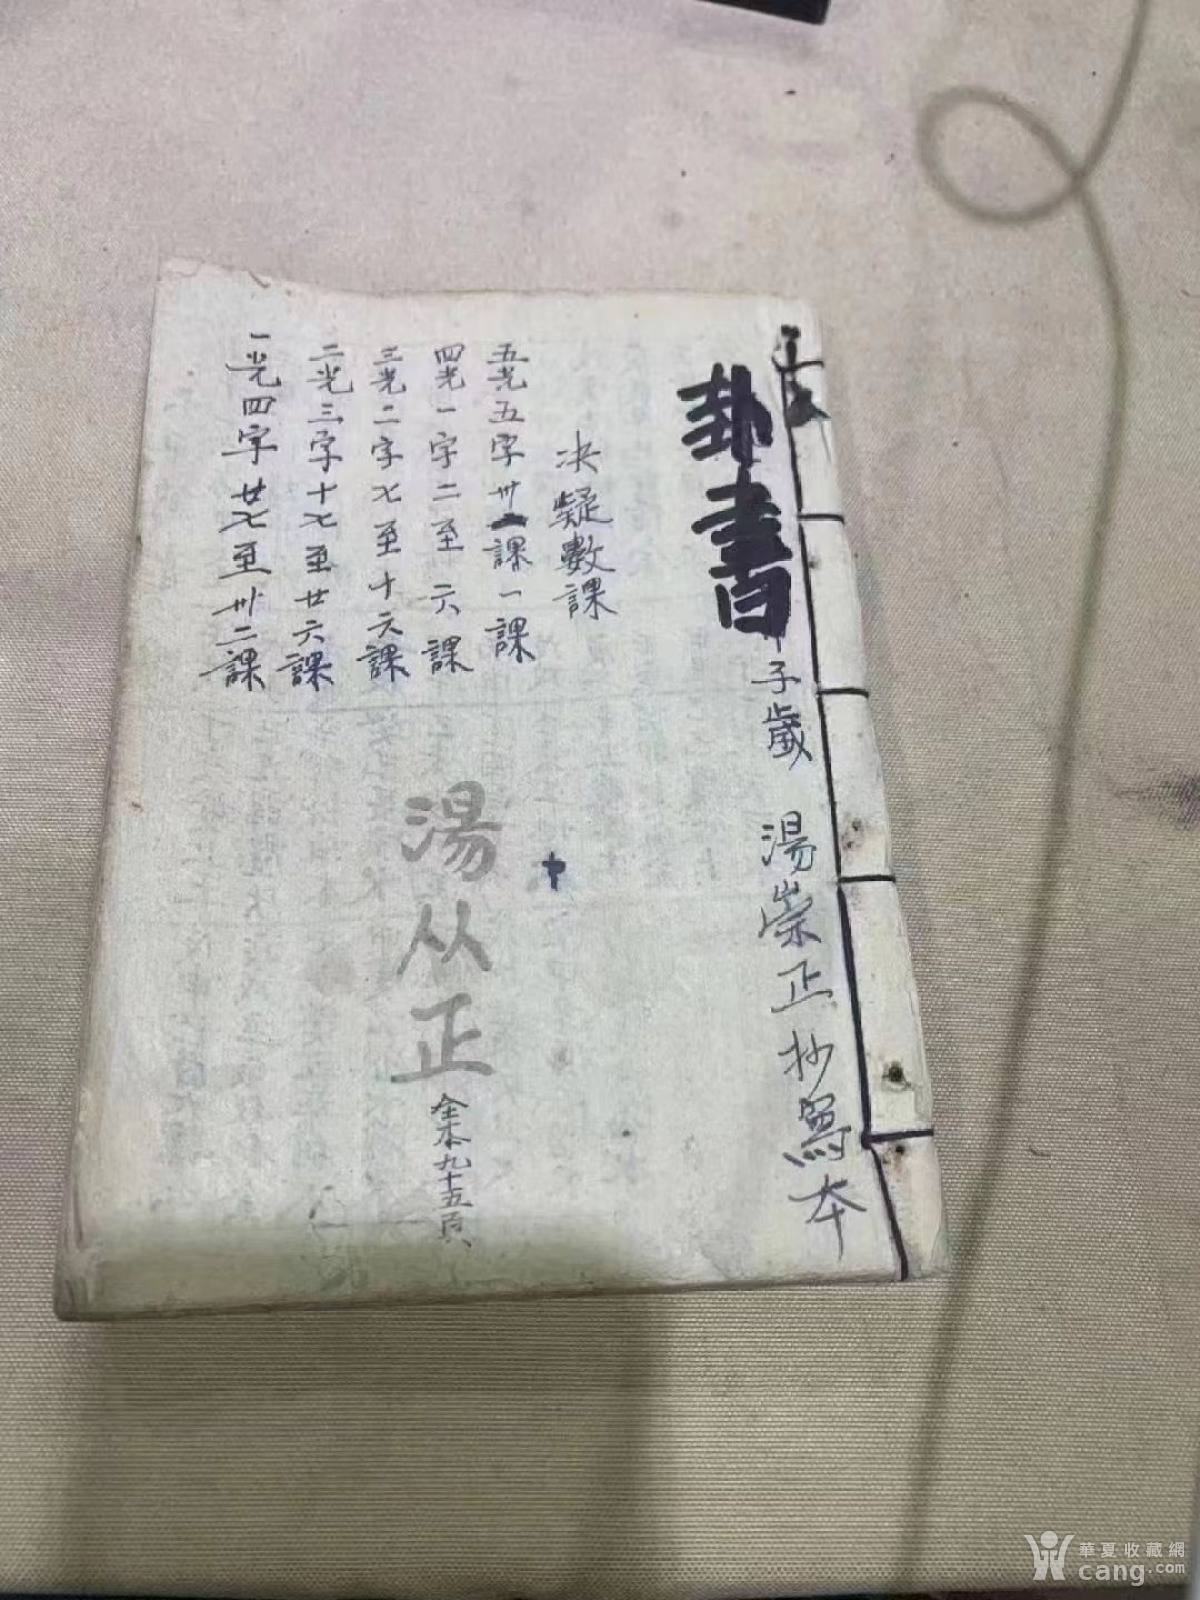 卦書
子歲 湯崇正抄寫本
决疑數課
五光五字卅二課一課
四光一字二至六課
三光二字七至十六課
二光三字十七至廿六課
一光四字廿七至卅二課
湯从正
全本九十五頁
華夏收藏網
cang.com